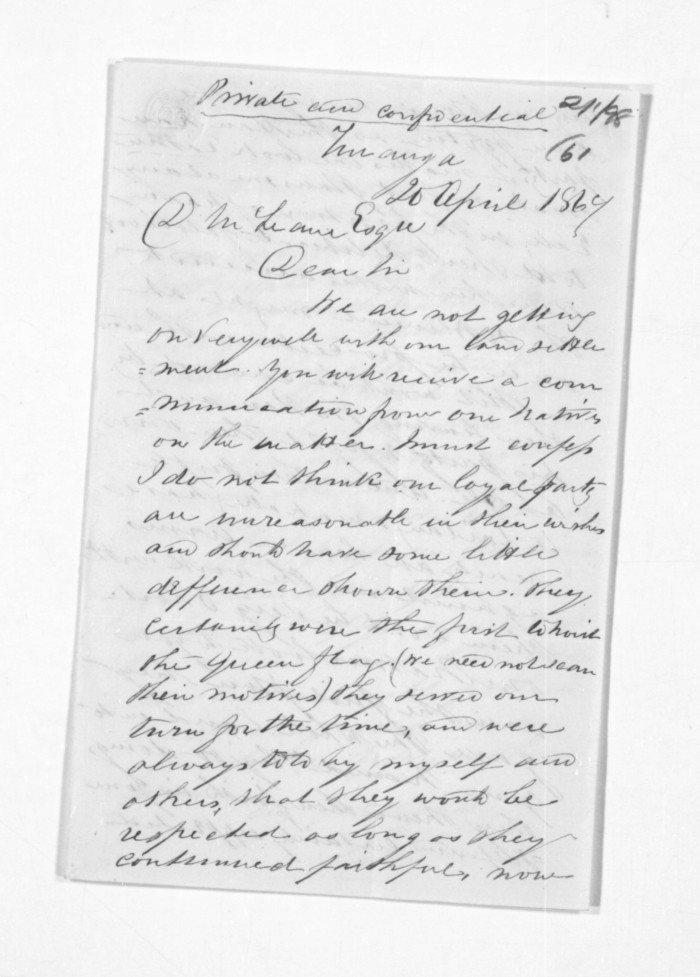 Private and confidential
Turanga
20 April 1867
D McLeane Esqre
Dear Sir
We are not getting
on very well with our land settle
=ment. You will receive a com
=munication from our Natives
on the matter. I must confess
I do not think our loyal party
are unreasonable in their wishes
and should have some little
difference shown them. They
certainly were the first to hoist
the Queen flag. (We need not scan
their motives) they served our
turn for the time, and were
always told by myself and
others, that they would be
respected as long as they
continued faithful, now